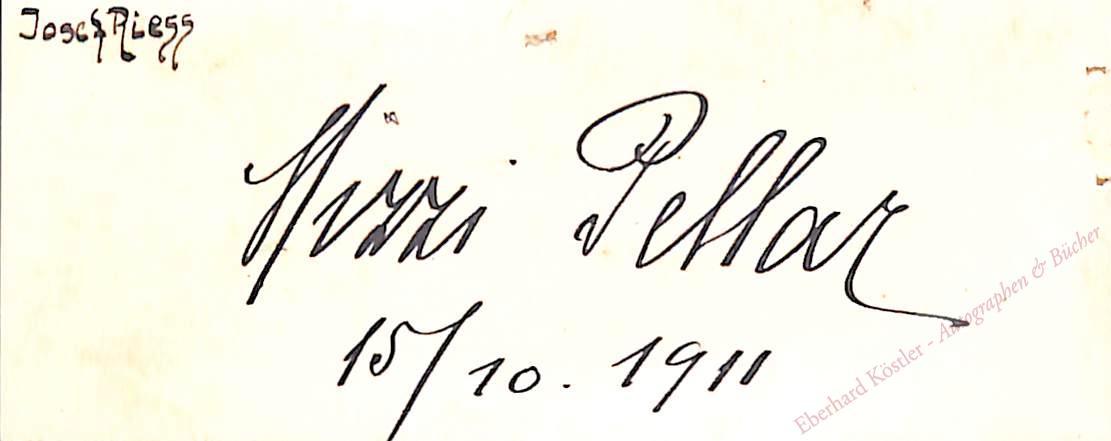 Josef Riess
Mizzi Pellar
15/10. 1911
Eberhard Köstler - Autographen & Bücher